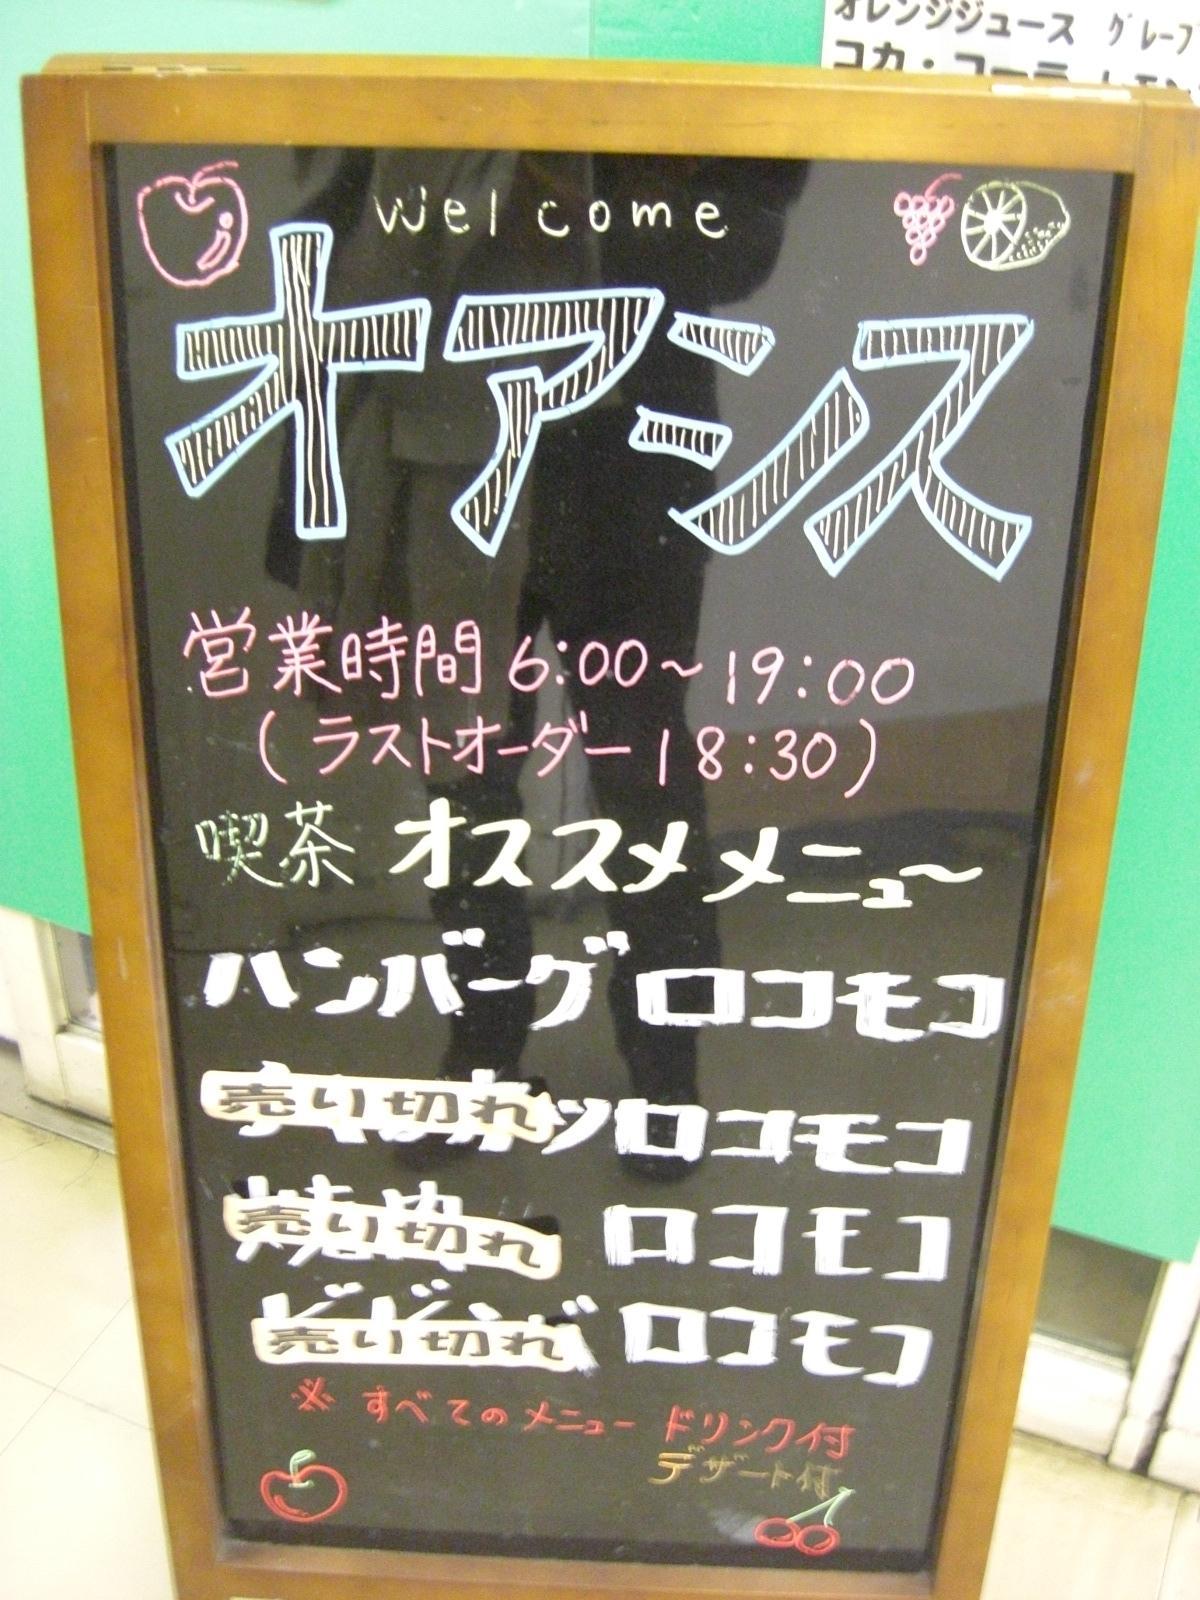 オレンジジュース グレープ
コカ・コーラ レモン
welcome
オアシス
営業時間 6:00~19:00
(ラストオーダー 18:30)
喫茶 オススメメニュ~
ハンバーグ ロコモコ
売り切れ ツロコモコ
売り切れ ロコモコ
ビビンバ 売り切れ ロコモコ
※ すべてのメニュー ドリンク付
デザート付